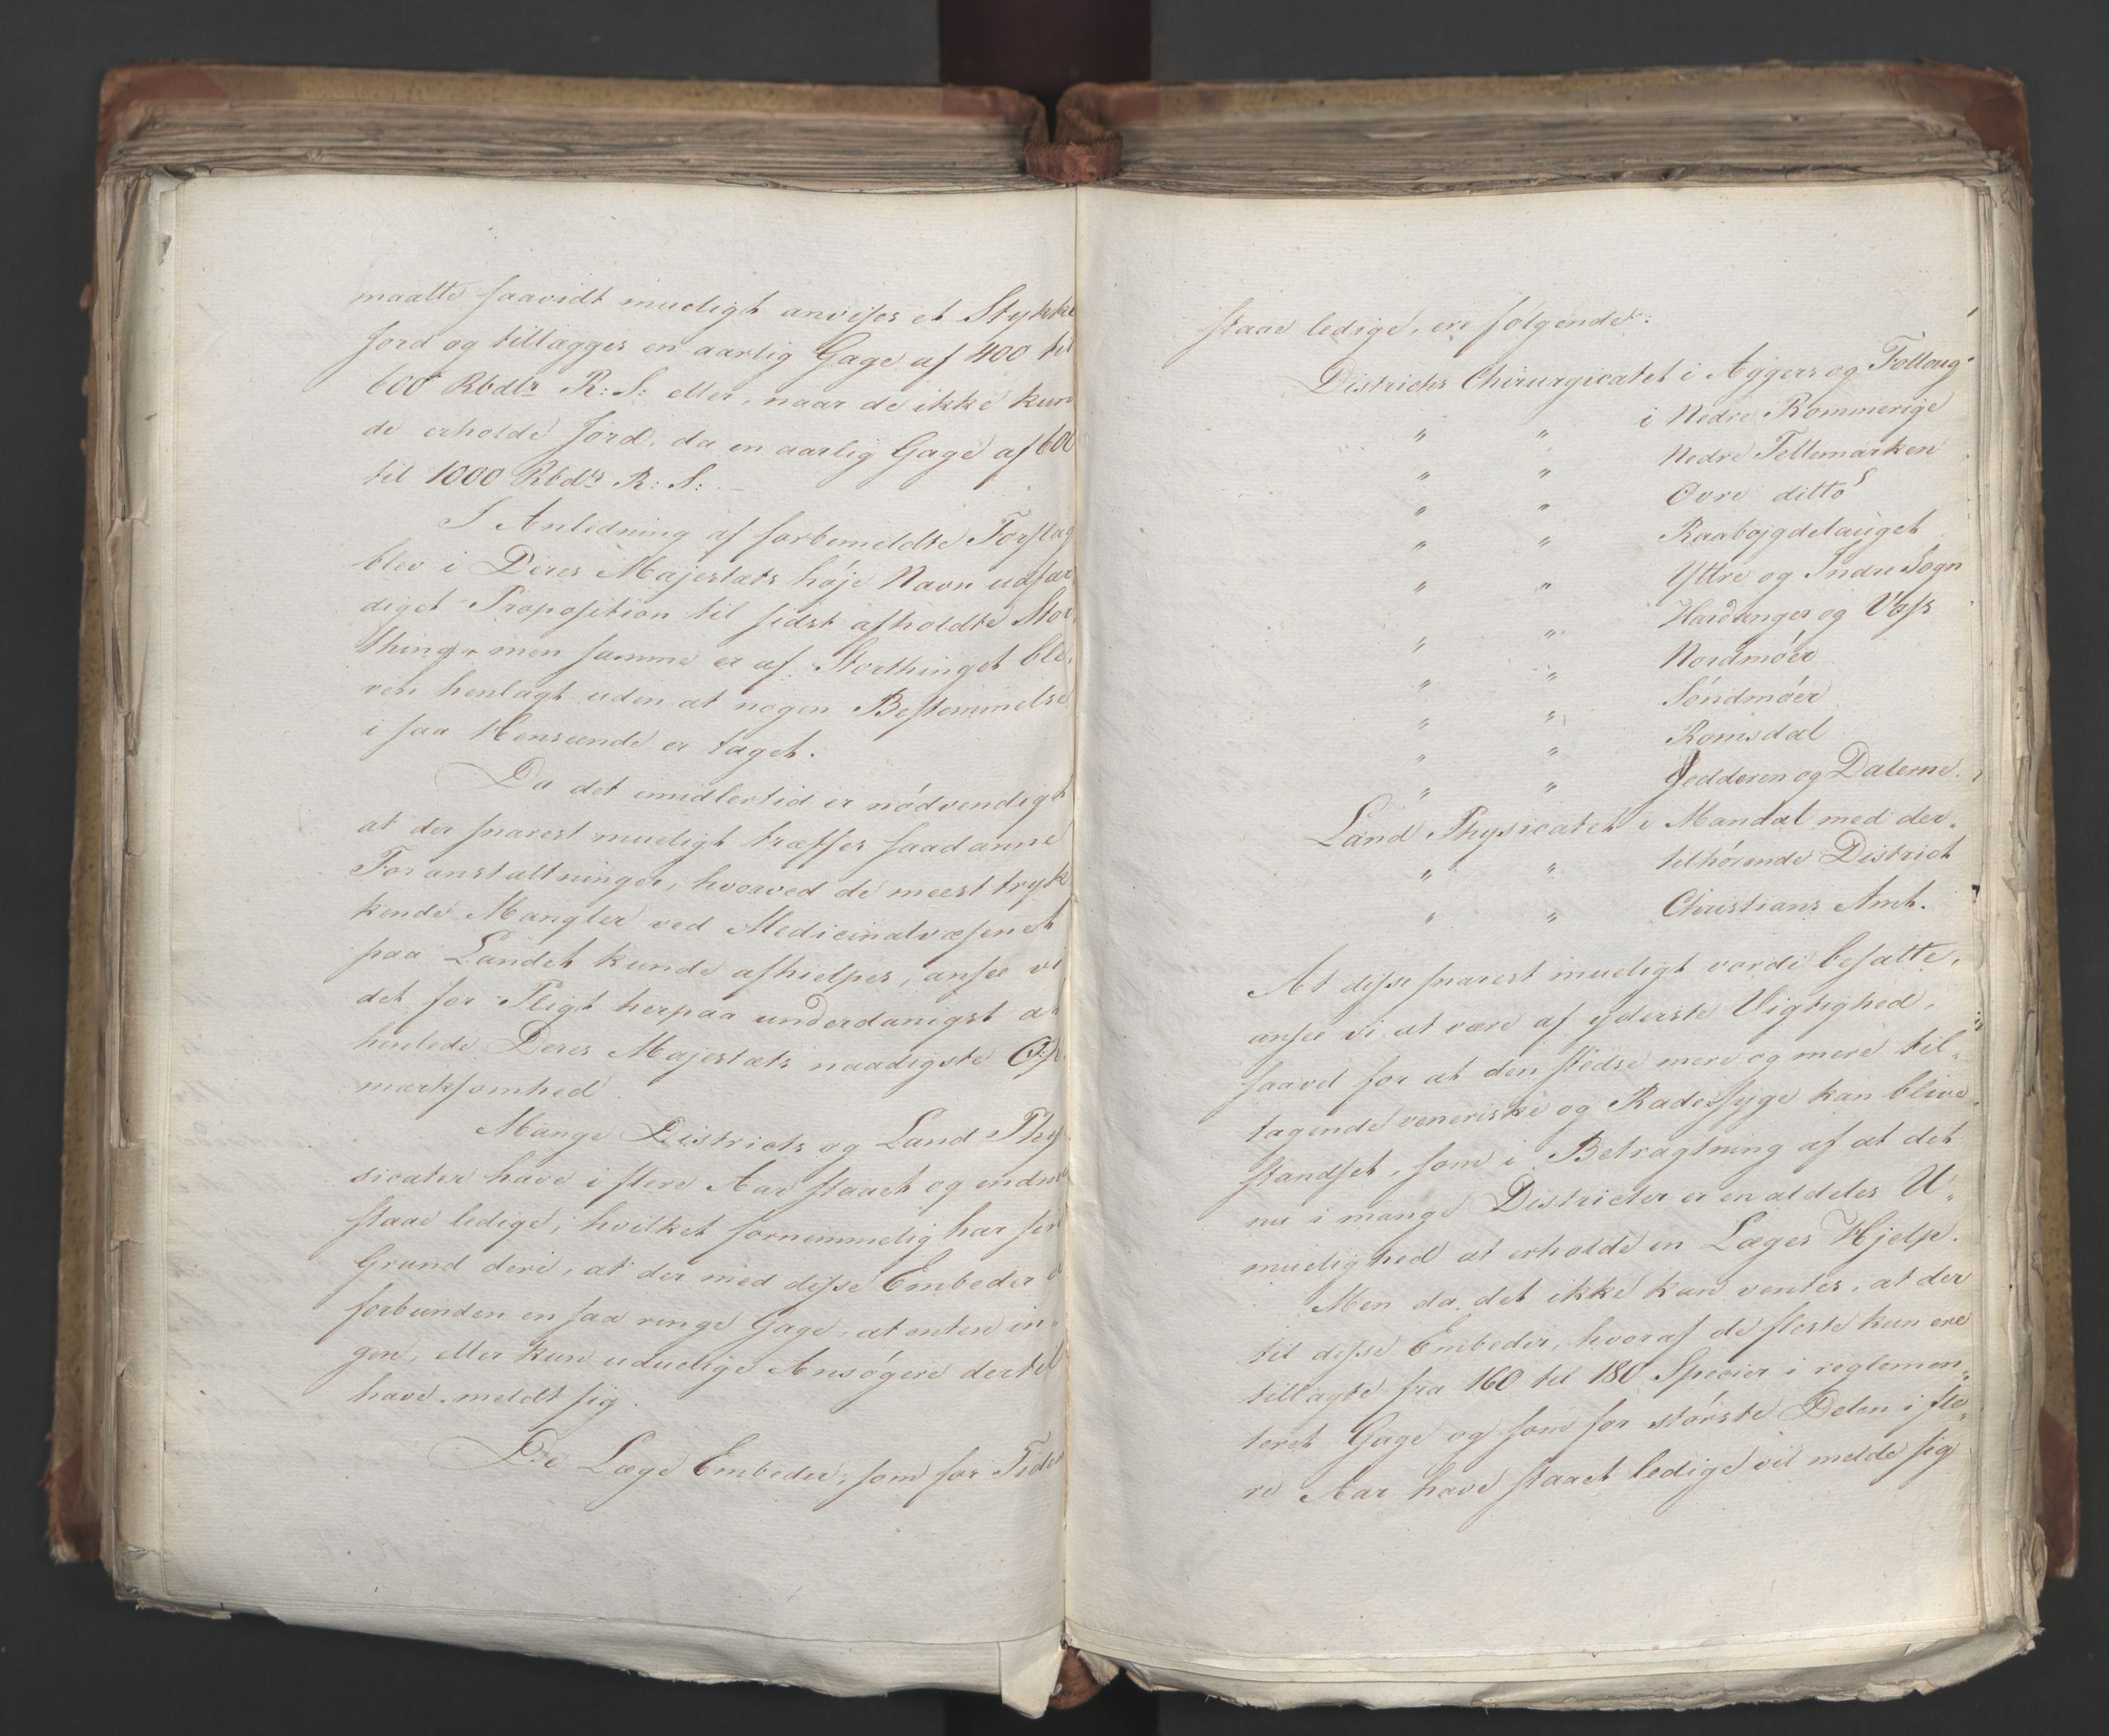 maatte saavidt mueligt anvises et Stykke
Jord og tillægges en aarlig Gage af 400 til
600 Rbdlr R: S: eller, naar de ikke kun
de erholde Jord, da en aarlig Gage af 600
til 1000 Rbdlr R: S:
I Anledning af forbemeldte Forslag
blev i Deres Majestæts høje Navn udfær
diget Proposition til sidst afholdte Stor
thing, men samme er af Storthinget ble-
ven henlagt uden at nogen Bestemmelse
i saa Henseende er taget.
Da det imidlertid er nödvendigt
at der snarest mueligt træffes saadanne
Foranstaltninger, hvorved de meest tryk
kende Mangler ved Medicinalvæsenet
paa Landet kunde afhielpes, ansee vi
det for Pligt herpaa underdanigst at
henlede Deres Majestæts naadigste Op-
mærksomhed.
Mange Districts og Land Phy
sicater have i flere Aar staaet og endnu
staae ledige, hvilket fornemmelig har sin
Grund deri, at der med disse Embeder er
forbunden en saa ringe Gage, at enten in-
gen, eller kun uduelige Ansögere dertil
have meldt sig.
De Læge Embeder, som for Tiden
staae ledige, ere følgende:
Districts Chirurgicatet i Aggers og Folloug
" " i Nedre Rommerige
" " Nedre Tellemarken
" " Øvre ditto
" " Raabøjgdelauget
" " Yttre og Indre Sogn
" " Hardanger og Voss
" " Nordmöer
" " Söndmöer
" " Romsdal
" " Jedderen og Dalerne.
Land Physicatet i Mandal med der-
" " tilhörende District
" " Christians Amt.
At disse snarest mueligt vorde besatte,
ansee vi at være af yderste Vigtighed,
saavel for at den stedse mere og mere til-
tagende veneriske og Radesyge kan blive
standset, som i Betragtning af at det
nu i mange Districter er en aldeles U-
muelighed at erholde en Læges Hjelp.
Men da det ikke kan ventes, at der
til disse Embeder, hvoraf de fleste kun ere
tillagte fra 160 til 180 Specier i reglemen-
teret Gage og som for störste Delen i fle-
re Aar have staaet ledige vil melde sig